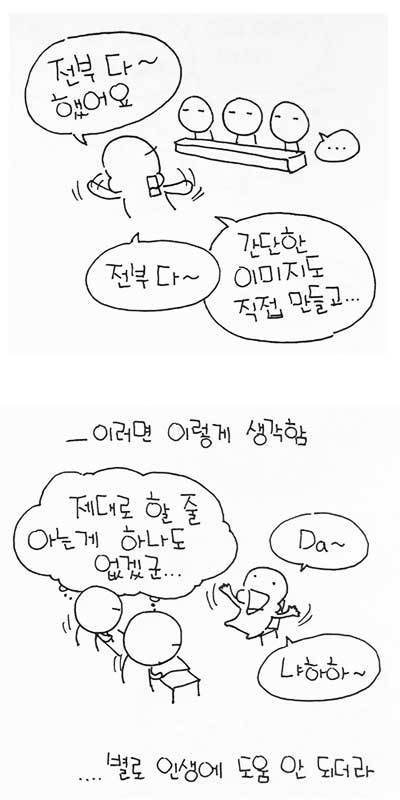 전부 다~
했어요
...
간단한
이미지도
직접 만들고...
전부 다~
_이러면 이렇게 생각함
제대로 할 줄
아는게 하나도
없겠군...
Da~
냐하하~
....별로 인생에 도움 안 되더라